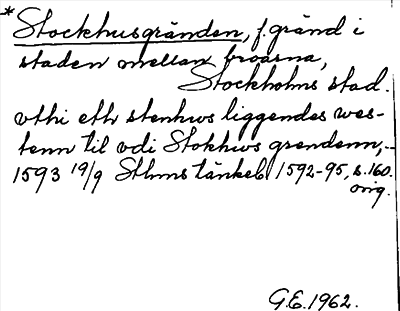 * Stockhusgränden, f. gränd i
staden mellan broarna,
Stockholms stad.
vthi eth stenhws liggendes wes-
tenn til vdi Stokhws grendenn,-
1593 19/9 Sthms tänkeb. 1592-95, s. 160.
orig.
G.E. 1962.